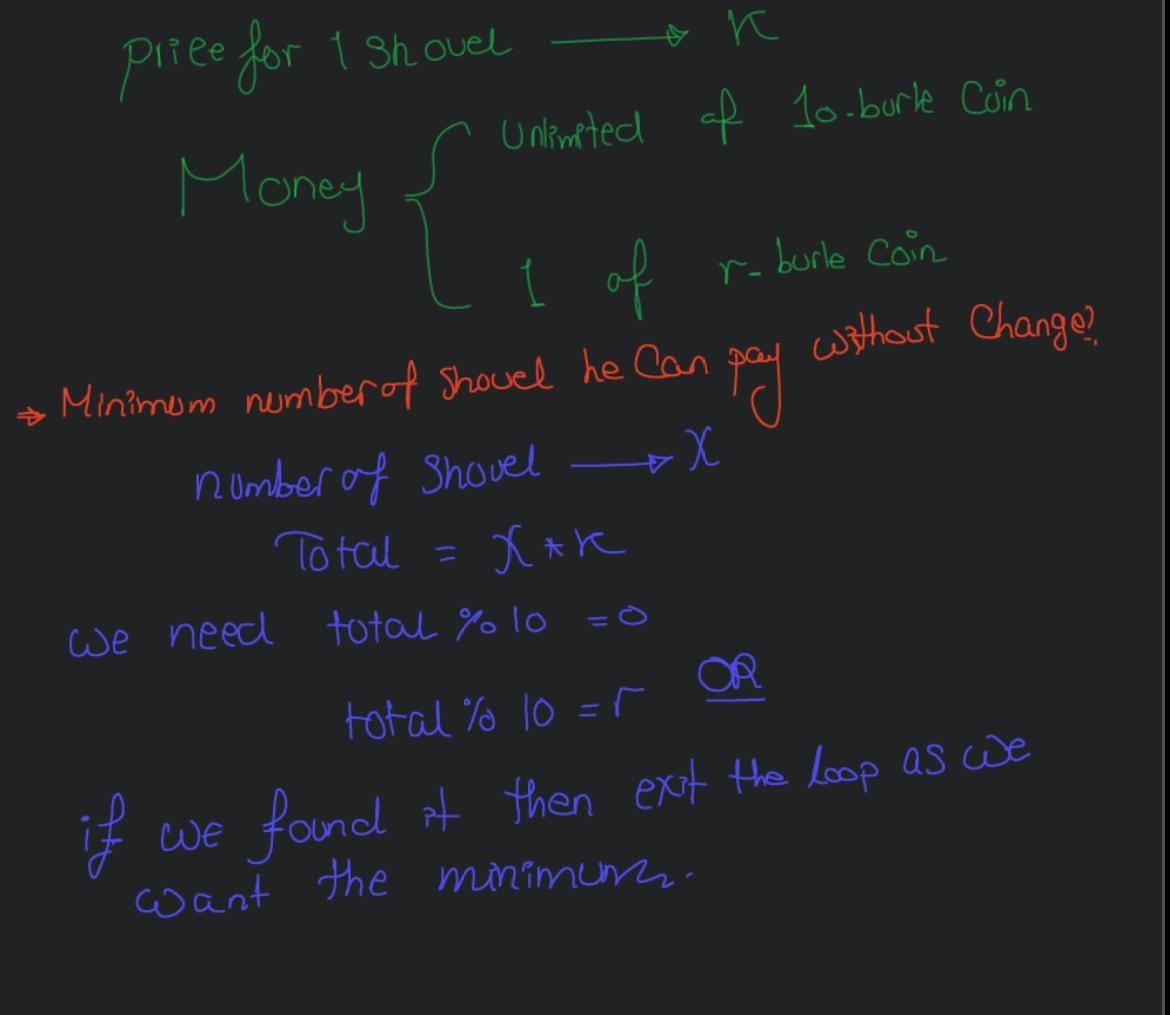 price for 1 shovel → K
Money { Unlimited of 10-burle Coin
1 of r-burle Coin
⇒ Minimum number of shovel he Can pay without Change?
number of shovel → X
Total = X * K
we need total % 10 = 0
OR
total % 10 = r
if we found it then exit the loop as we
want the minimum.